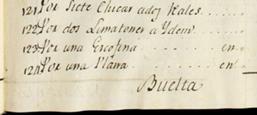 121 Por siete Chicar ados Rales......
122 Por dos Limatones a Ydem......
123 Por una Escofina ........ en..
124 Por una Plana ........ en..
Buelta